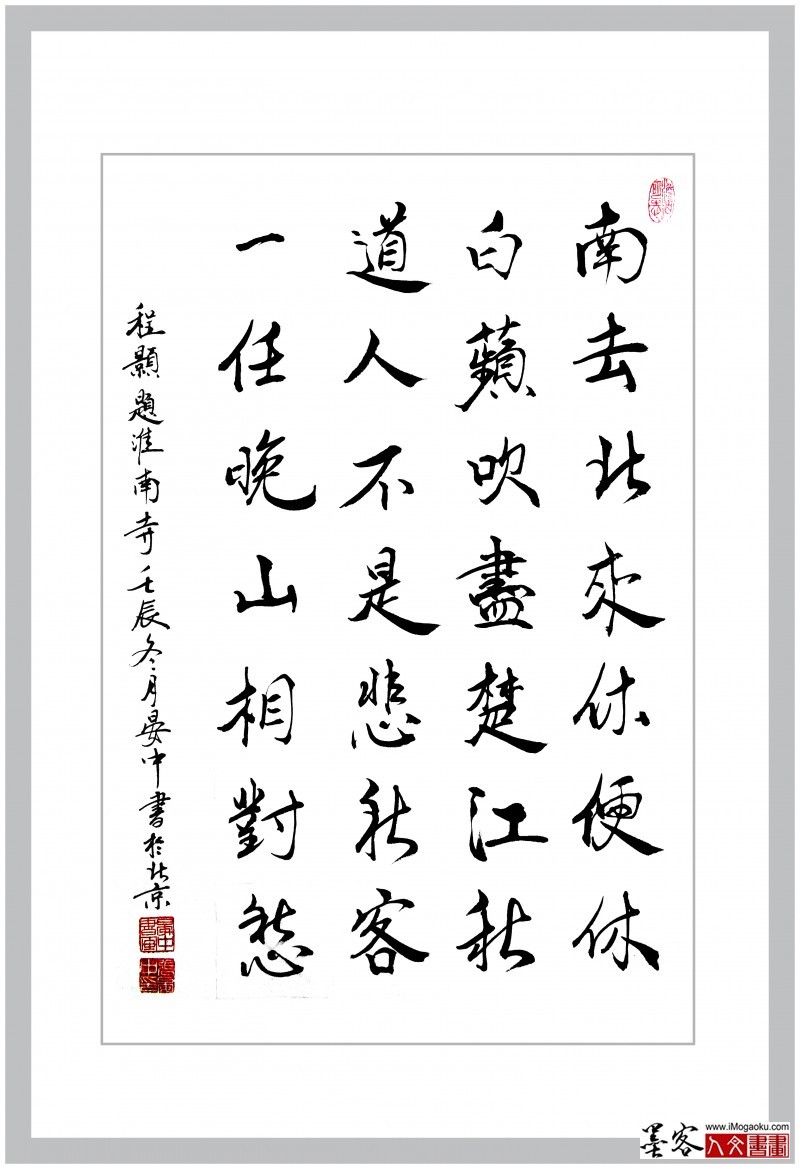 南去北來休便休
白蘋吹盡楚江秋
道人不是悲秋客
一任晚山相對愁
程顥題淮南寺壬辰冬月晏中書於北京
www.iMogaoku.com
墨客
人文書畫